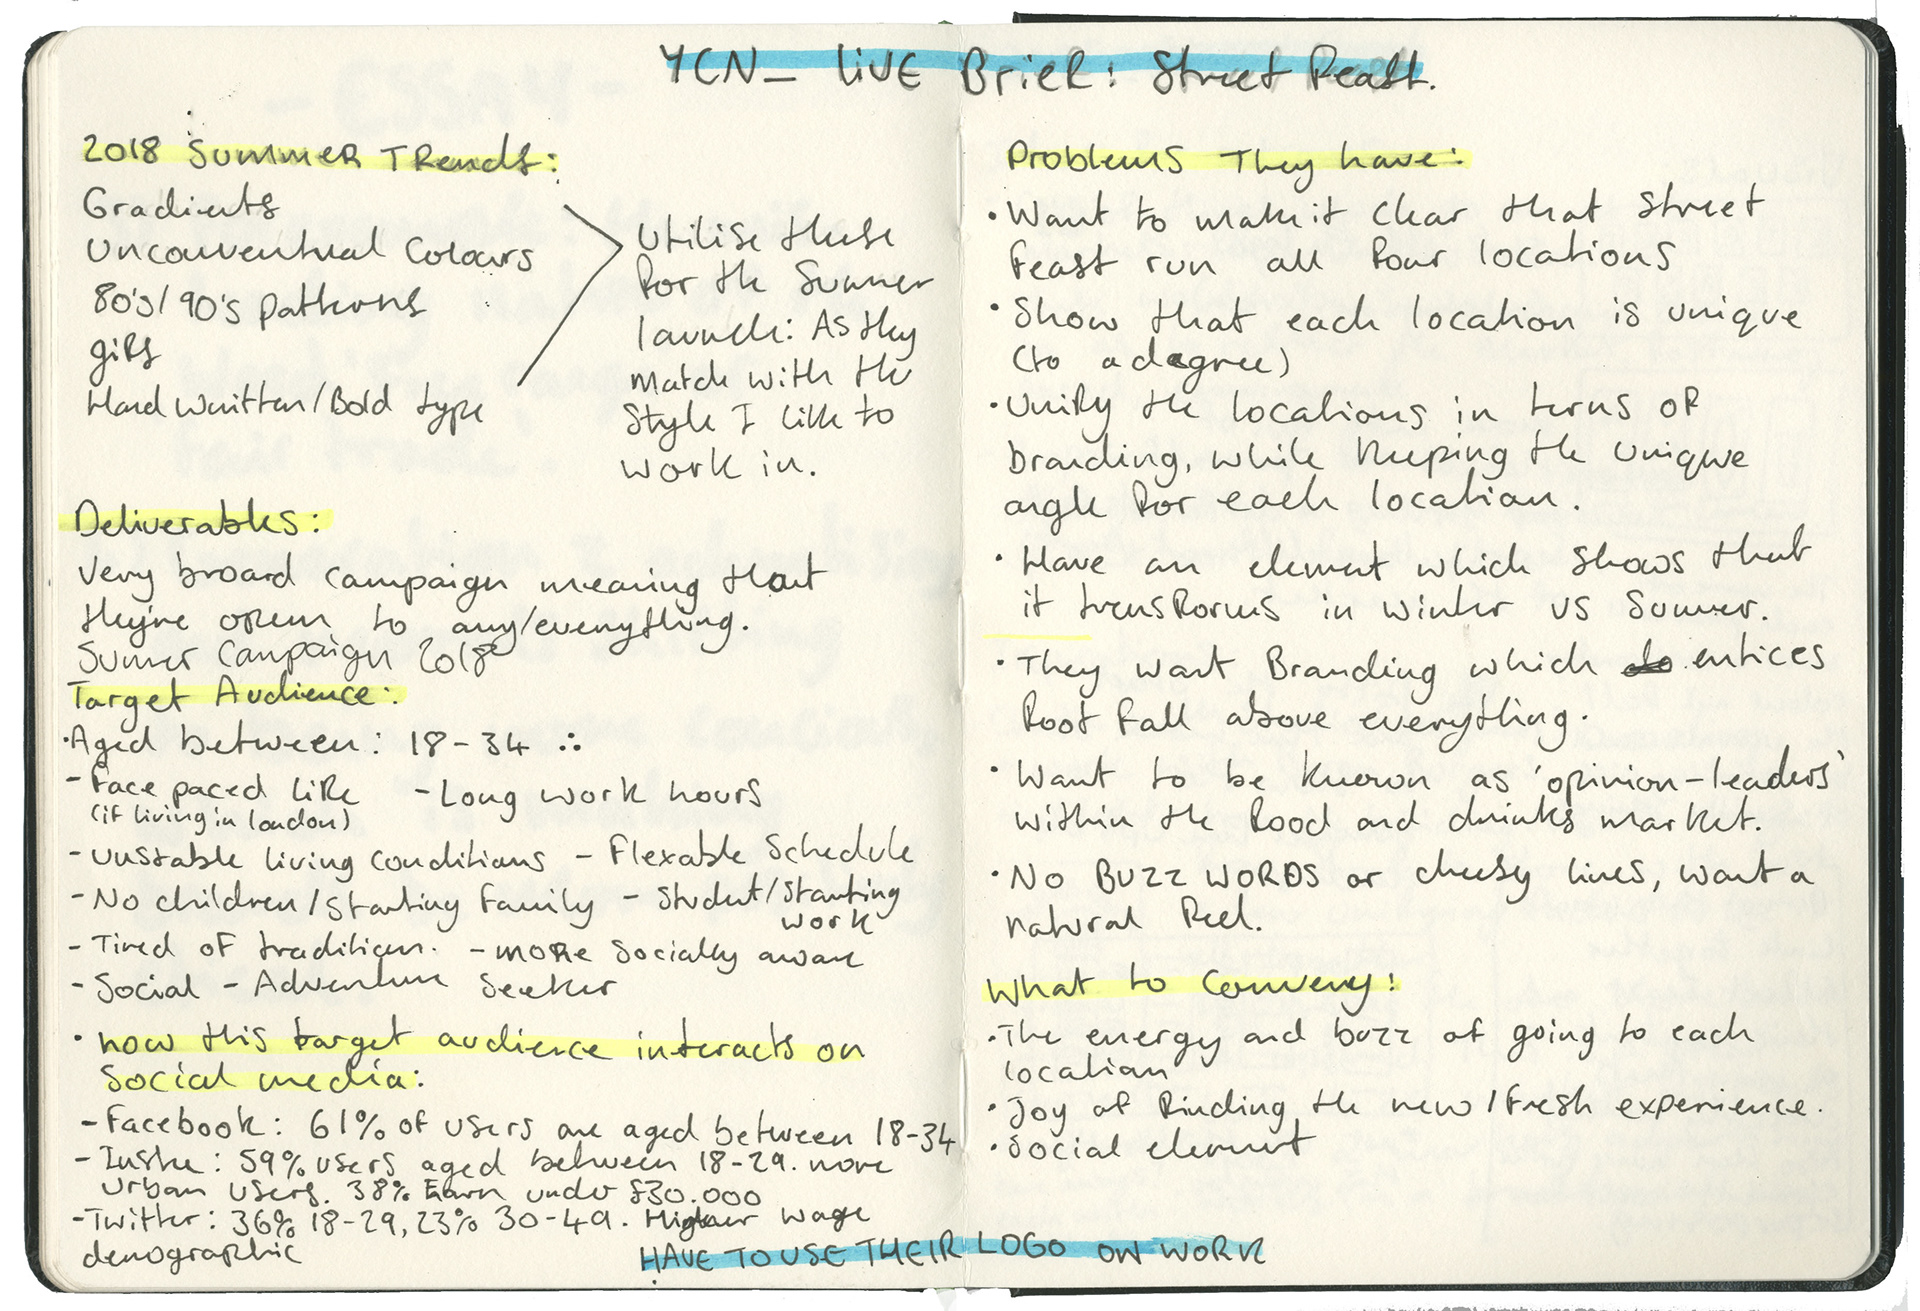 YCN_ LIVE Brief: Street Feast.
2018 Summer Trends:
Gradients
Unconventual Colours
80's/90's patterns
gifs
Hand written/Bold type
Utilise these
for the Summer
launch: As they
match with the
Style I like to
work in.
Deliverables:
Very broard campaign meaning that
they're open to any/everything.
Summer Campaign 2018
Target Audience:
·Aged between: 18-34 ∴
- Face paced life - Long work hours
(if living in london)
- Unstable living conditions - Flexable Schedule
- No children/Starting Family - Student/Starting
work
- Tired of tradition. - more Socially aware
- Social - Adventure Seeker
· how this target audience interacts on
Social media:
- Facebook: 61% of users are aged between 18-34
- Insta: 59% users aged between 18-29. more
Urban users. 38% Earn under £30.000
- Twitter: 36% 18-29, 23% 30-49. Higher wage
demographic
Problems They have:
· Want to make it clear that Street
Feast run all four locations
· Show that each location is unique
(to a degree)
· Unify the locations in terms of
branding, while keeping the unique
angle for each location.
· Have an element which shows that
it transforms in winter vs Summer.
· They want Branding which entices
foot fall above everything.
· Want to be known as 'opinion-leaders'
within the food and drinks market.
· NO BUZZ WORDS or cheesy lines, want a
natural feel.
What to Convery:
· The energy and buzz of going to each
location
· Joy of finding the new/fresh experience.
· Social element
HAVE TO USE THEIR LOGO ON WORK